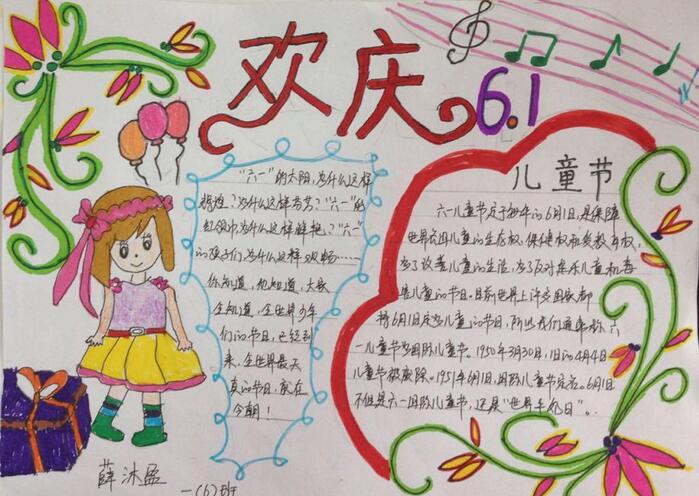 欢庆6.1
"六一"的太阳,为什么这样
辉煌?为什么这样芳芳?"六一"的
红领巾为什么这样鲜艳?"六一"
的孩子们为什么这样欢畅……
你知道,他知道,大家
全知道,全世界少年
们的节日,已经到
来,全世界最天
真的节日,就在
今朝!
儿童节
六一儿童节定于每年的6月1日,是保障
世界各国儿童的生存权、保健权和受教育权,
为了改善儿童的生活,为了反对虐杀儿童和毒
害儿童的节日。目前世界上许多国家都
将6月1日定为儿童的节日,所以我们通常称六
一儿童节为国际儿童节。1950年3月30日,旧的4月4日
儿童节被废除。1951年6月1日,国际儿童节定为6月1日
不但是六一国际儿童节,还是"世界牛奶日"。
薛沐盈
一(6)班